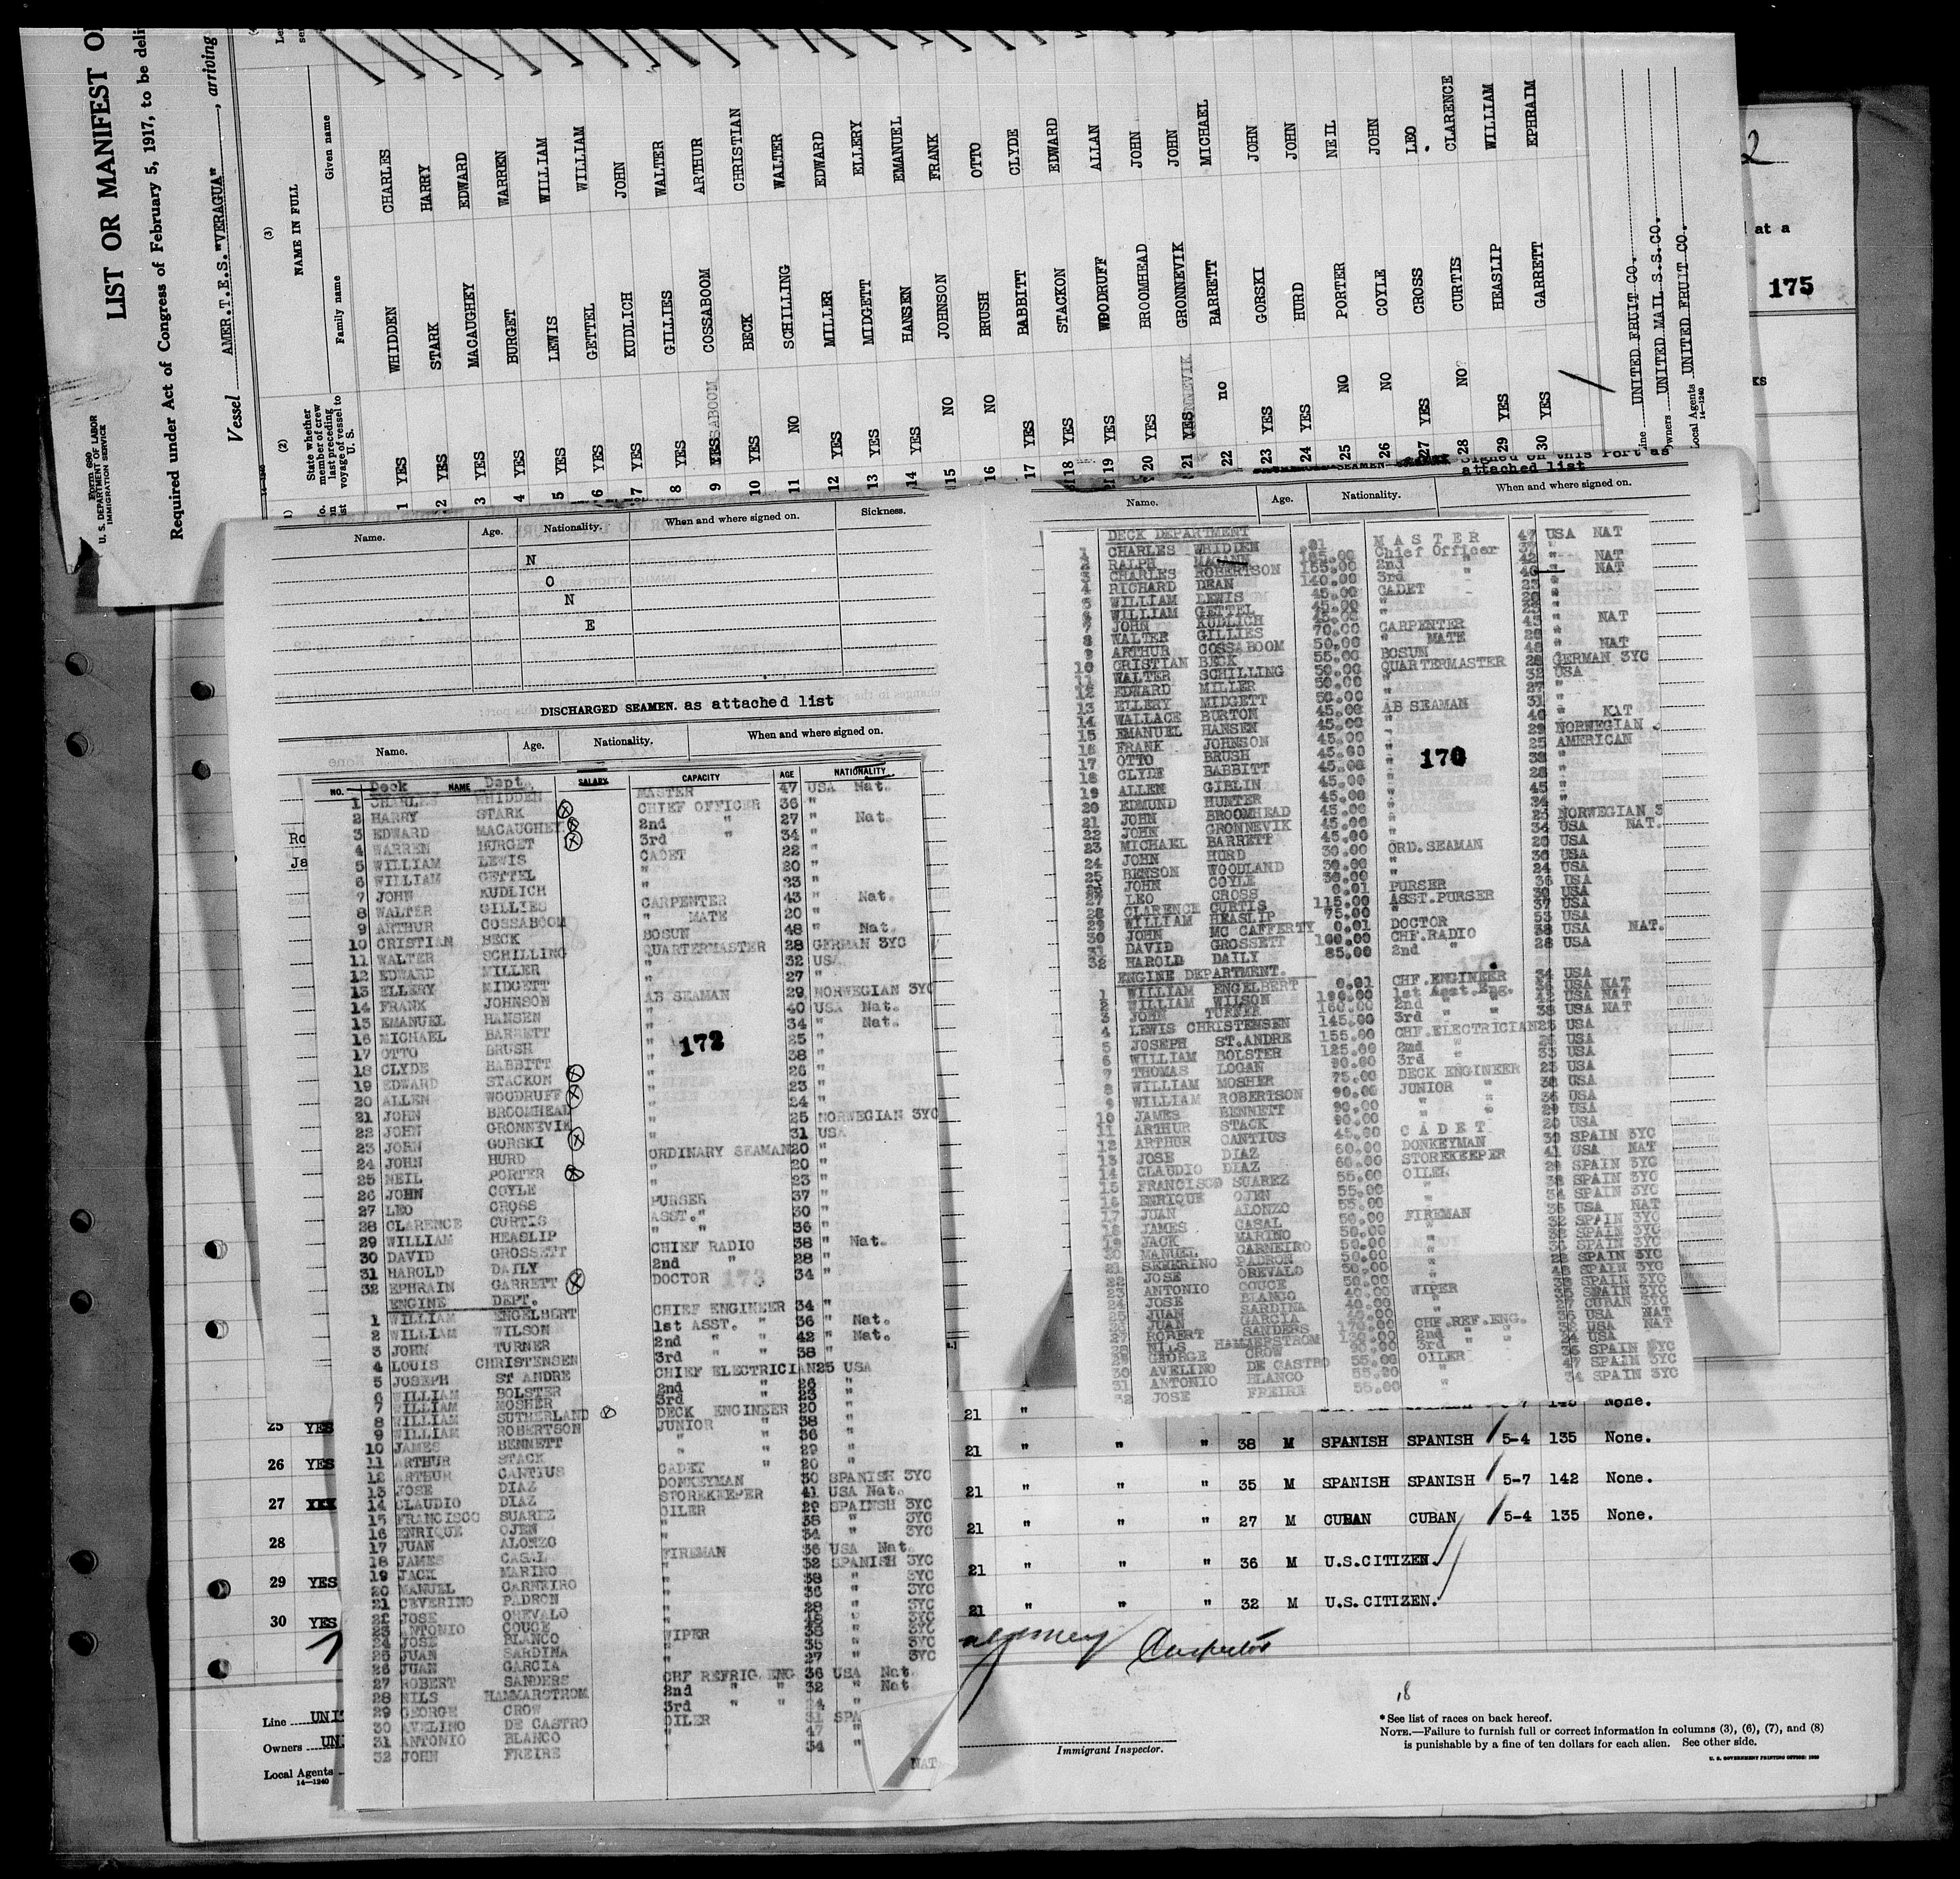 Form 680
U. S. DEPARTMENT OF LABOR
IMMIGRATION SERVICE
LIST OR MANIFEST O
Required under Act of Congress of February 5, 1917, to be deli
Vessel AMER.T.E.S."VERAGUA", arriving
(2)
(3)
State whether member of crew on last preceding voyage of vessel to U. S.
NAME IN FULL
Family name
Given name
1 YES WHIDDEN CHARLES
2 YES STARK HARRY
3 YES MACAUGHEY EDWARD
4 YES BURGET WARREN
5 YES LEWIS WILLIAM
6 YES GETTEL WILLIAM
7 YES KUDLICH JOHN
8 YES GILLIES WALTER
9 YES COSSABOOM ARTHUR
10 YES BECK CHRISTIAN
11 NO SCHILLING WALTER
12 YES MILLER EDWARD
13 YES MIDGETT ELLERY
14 YES HANSEN EMANUEL
15 NO JOHNSON FRANK
16 NO BRUSH OTTO
17 YES BABBITT CLYDE
18 YES STACKON EDWARD
19 YES WOODRUFF ALLAN
20 YES BROOMHEAD JOHN
21 YES GRONNEVIK JOHN
22 no BARRETT MICHAEL
23 YES GORSKI JOHN
24 YES HURD JOHN
25 NO PORTER NEIL
26 NO COYLE JOHN
27 YES CROSS LEO
28 NO CURTIS CLARENCE
29 YES HEASLIP WILLIAM
30 YES GARRETT EPHRAIM
Line UNITED FRUIT CO.
Owners UNITED MAIL S.S.CO.
Local Agents UNITED FRUIT CO.
14-1240
2
at a
175
Name. Age. Nationality. When and where signed on. Sickness.
N
O
N
E
DISCHARGED SEAMEN. as attached list
Name. Age. Nationality. When and where signed on.
NO. NAME SALARY CAPACITY AGE NATIONALITY
Deck Dept.
1 CHARLES WHIDDEN MASTER 47 USA Nat.
2 HARRY STARK CHIEF OFFICER 36 "
3 EDWARD MACAUGHEY 2nd " 27 " Nat.
4 WARREN BURGET 3rd " 34 "
5 WILLIAM LEWIS CADET 22 "
6 WILLIAM GETTEL " 20 "
7 JOHN KUDLICH " 23 "
8 WALTER GILLIES CARPENTER 43 " Nat.
9 ARTHUR COSSABOOM " MATE 20 "
10 CRISTIAN BECK BOSUN 48 " Nat.
11 WALTER SCHILLING QUARTERMASTER 28 GERMAN 3YC
12 EDWARD MILLER " 32 USA
13 ELLERY MIDGETT " 27 "
14 FRANK JOHNSON AB SEAMAN 29 NORWEGIAN 3YC
15 EMANUEL HANSEN " 40 USA Nat.
16 MICHAEL BARRETT " 34 " Nat.
17 OTTO BRUSH " 25 "
18 CLYDE BABBITT " 38 "
19 EDWARD STACKON " 26 "
20 ALLEN WOODRUFF " 23 "
21 JOHN BROOMHEAD " 24 "
22 JOHN GRONNEVIK " 25 NORWEGIAN 3YC
23 JOHN GORSKI " 31 USA
24 JOHN HURD ORDINARY SEAMAN 20 "
25 NEIL PORTER " 20 "
26 JOHN COYLE " 23 "
27 LEO CROSS PURSER 37 "
28 CLARENCE CURTIS ASST." 30 "
29 WILLIAM HEASLIP " " 36 "
30 DAVID GROSSETT CHIEF RADIO 38 " Nat.
31 HAROLD DAILY 2nd " 28 "
32 EPHRAIN GARRETT DOCTOR 34 "
172
173
ENGINE DEPT.
1 WILLIAM ENGELBERT CHIEF ENGINEER 34 "
2 WILLIAM WILSON 1st ASST. " 36 " Nat.
3 JOHN TURNER 2nd " " 42 " Nat.
4 LOUIS CHRISTENSEN 3rd " " 38 "
5 JOSEPH ST ANDRE CHIEF ELECTRICIAN 25 USA
6 WILLIAM BOLSTER 2nd " 26 "
7 WILLIAM MOSHER 3rd " 23 "
8 WILLIAM SUTHERLAND DECK ENGINEER 20 "
9 WILLIAM ROBERTSON JUNIOR " 38 "
10 JAMES BENNETT " " 36 "
11 ARTHUR STACK " " 29 "
12 ARTHUR CANTIUS CADET " 20 "
13 JOSE DIAZ DONKEYMAN 30 SPANISH 3YC
14 CLAUDIO DIAZ STOREKEEPER 41 USA Nat.
15 FRANCISCO SUAREZ OILER 29 SPAINSH 3YC
16 ENRIQUE OJEN " 38 " 3YC
17 JUAN ALONZO " 34 " 3YC
18 JAMES CASAL FIREMAN 36 USA Nat.
19 JACK MARINO " 32 SPANISH 3YC
20 MANUEL CARNEIRO " 38 " 3YC
21 CEVERINO PADRON " 36 " 3YC
22 JOSE OREVALO " 28 " 3YC
23 ANTONIO COUCE " 48 " 3YC
24 JOSE BLANCO WIPER 38 " 3YC
25 JUAN SARDINA " 35 " 3YC
26 JUAN GARCIA " 27 " 3YC
27 ROBERT SANDERS CHF REFRIG.ENG 36 USA Nat.
28 NILS HAMMARSTROM 2nd " " 32 " Nat
29 GEORGE CROW 3rd " " 24 "
30 AVELINO DE CASTRO OILER 31 SPA
31 ANTONIO BLANCO " 47 "
32 JOHN FREIRE " 34 "
NAT
SEAMEN Signed on this Port as
attached list
Name. Age. Nationality. When and where signed on.
DECK DEPARTMENT
1 CHARLES WHIDDEN .01 MASTER 47 USA NAT
2 RALPH MACANN 185.00 Chief Officer 37 "
3 CHARLES ROBERTSON 155.00 2nd " 42 " NAT
4 RICHARD DEAN 140.00 3rd " 40 " NAT
5 WILLIAM LEWIS 45.00 CADET
6 WILLIAM GETTEL 45.00 "
7 JOHN KUDLICH 45.00 "
8 WALTER GILLIES 70.00 CARPENTER NAT
9 ARTHUR COSSABOOM 50.00 " MATE
10 CRISTIAN BECK 55.00 BOSUN NAT
11 WALTER SCHILLING 50.00 QUARTERMASTER 28 GERMAN 3YC
12 EDWARD MILLER 50.00 " 32 USA
13 ELLERY MIDGETT 50.00 " 27 "
14 WALLACE BURTON 45.00 AB SEAMAN 31 "
15 EMANUEL HANSEN 45.00 " 40 " NAT
16 FRANK JOHNSON 45.00 " 29 NORWEGIAN 3
17 OTTO BRUSH 45.00 " 25 AMERICAN
18 CLYDE BABBITT 45.00 " 38 "
19 ALLEN GIBLIN 45.00 " 28 "
20 EDMUND HUNTER 45.00 " 45 "
21 JOHN BROOMHEAD 45.00 " 24 "
22 JOHN GRONNEVIK 45.00 " 25 NORWEGIAN 3
23 MICHAEL BARRETT 45.00 " 34 USA NAT.
24 JOHN HURD 30.00 ORD.SEAMAN 20 USA
25 BENSON WOODLAND 30.00 " 30 USA
26 JOHN COYLE 30.00 " 24 USA
27 LEO CROSS 0.01 PURSER 36 USA
28 CLARENCE CURTIS 115.00 ASST.PURSER 30 USA
29 WILLIAM HEASLIP 75.00 " 37 USA
30 JOHN MC CAFFERTY 0.01 DOCTOR 53 USA
31 DAVID GROSSETT 100.00 CHF.RADIO 38 USA NAT.
32 HAROLD DAILY 85.00 2nd " 28 USA
170
ENGINE DEPARTMENT.
1 WILLIAM ENGELBERT 0.01 CHF.ENGINEER 34 USA
2 WILLIAM WILSON 190.00 1st Asst.Eng. USA NAT
3 JOHN TURNER 160.00 2nd " " 42 USA NAT
4 LEWIS CHRISTENSEN 145.00 3rd " " 38 USA NAT
5 JOSEPH ST.ANDRE 155.00 CHF.ELECTRICIAN 25 USA
6 WILLIAM BOLSTER 125.00 2nd " USA
7 THOMAS LOGAN 3rd " 33 USA
8 WILLIAM MOSHER 75.00 DECK ENGINEER 23 USA
9 WILLIAM ROBERTSON 90.00 JUNIOR " 38 USA
10 JAMES BENNETT 90.00 " " 36 USA
11 ARTHUR STACK 90.00 " " 29 USA
12 ARTHUR CANTIUS 45.00 CADET 20 USA
13 JOSE DIAZ 60.00 DONKEYMAN 30 SPAIN 3YC
14 CLAUDIO DIAZ 60.00 STOREKEEPER 41 USA NAT
15 FRANCISCO SUAREZ 55.00 OILER 29 SPAIN 3YC
16 ENRIQUE OJEN 55.00 " SPAIN 3YC
17 JUAN ALONZO 55.00 " 34 SPAIN 3YC
18 JAMES CASAL 50.00 FIREMAN 36 USA NAT
19 JACK MARINO 50.00 " 32 SPAIN 3YC
20 MANUEL CARNEIRO 50.00 " SPAIN 3YC
21 SEVERINO PADRON 50.00 " 36 SPAIN 3YC
22 JOSE OREVALO 50.00 " 28 SPAIN 3YC
23 ANTONIO COUCE 50.00 " 48 SPAIN 3YC
24 JOSE BLANCO 40.00 WIPER 38 SPAIN 3YC
25 JUAN SARDINA 40.00 " 35 SPAIN 3YC
26 JUAN GARCIA 40.00 " 27 CUBAN 3YC
27 ROBERT SANDERS 170.00 CHF.REF.ENG. 36 USA NAT
28 NILS HAMMERSTROM 130.00 2nd " " 32 USA NAT
29 GEORGE CROW 90.00 3rd " " 24 USA
30 AVELINO DE CASTRO 55.00 OILER SPAIN 3YC
31 ANTONIO BLANCO 55.00 " 47 SPAIN 3YC
32 JOSE FREIRE 55.00 " 34 SPAIN 3YC
21 " None.
25 YES 21 " " " 38 M SPANISH SPANISH 5-4 135 None.
26 YES 21 " " " 35 M SPANISH SPANISH 5-7 142 None.
27 XXX 21 " " " 27 M CUBAN CUBAN 5-4 135 None.
28 21 " " " 36 M U.S.CITIZEN.
29 YES 21 " " " 32 M U.S.CITIZEN.
30 YES
Line UNI
Owners UN
Local Agents
14-1240
Immigrant Inspector.
18
* See list of races on back hereof.
NOTE.—Failure to furnish full or correct information in columns (3), (6), (7), and (8)
is punishable by a fine of ten dollars for each alien. See other side.
U. S. GOVERNMENT PRINTING OFFICE: 1930